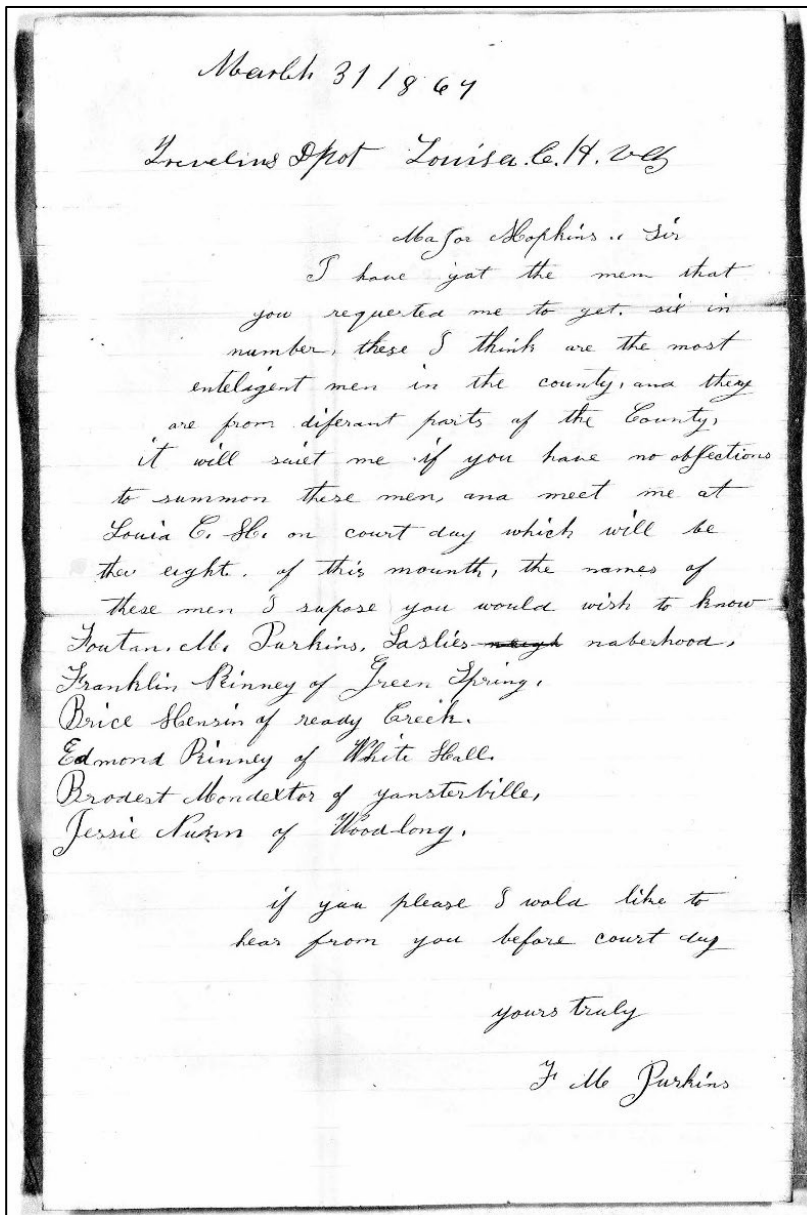 March 31 1867
Trevelins Dpot Louisa. C. H. Va
Major Hopkins.. Sir
I have got the men that
you requested me to get. six in
number, these I think are the most
enteligent men in the county, and they
are from diferant parts of the County,
it will suiet me if you have no objections
to summon these men, and meet me at
Louia C. H. on court day which will be
the eight. of this mounth, the names of
these men I supose you would wish to know
Foutan. M. Purkins, Laslies naberhood,
Franklin Kinney of Green Spring.
Brice Hensin of ready Creek.
Edmond Kinney of White Hall.
Brodest Mondextor of yansterville,
Jessie Nunn of Woodlong.
if you please I wold like to
hear from you before court day
yours truly
F M Purkins